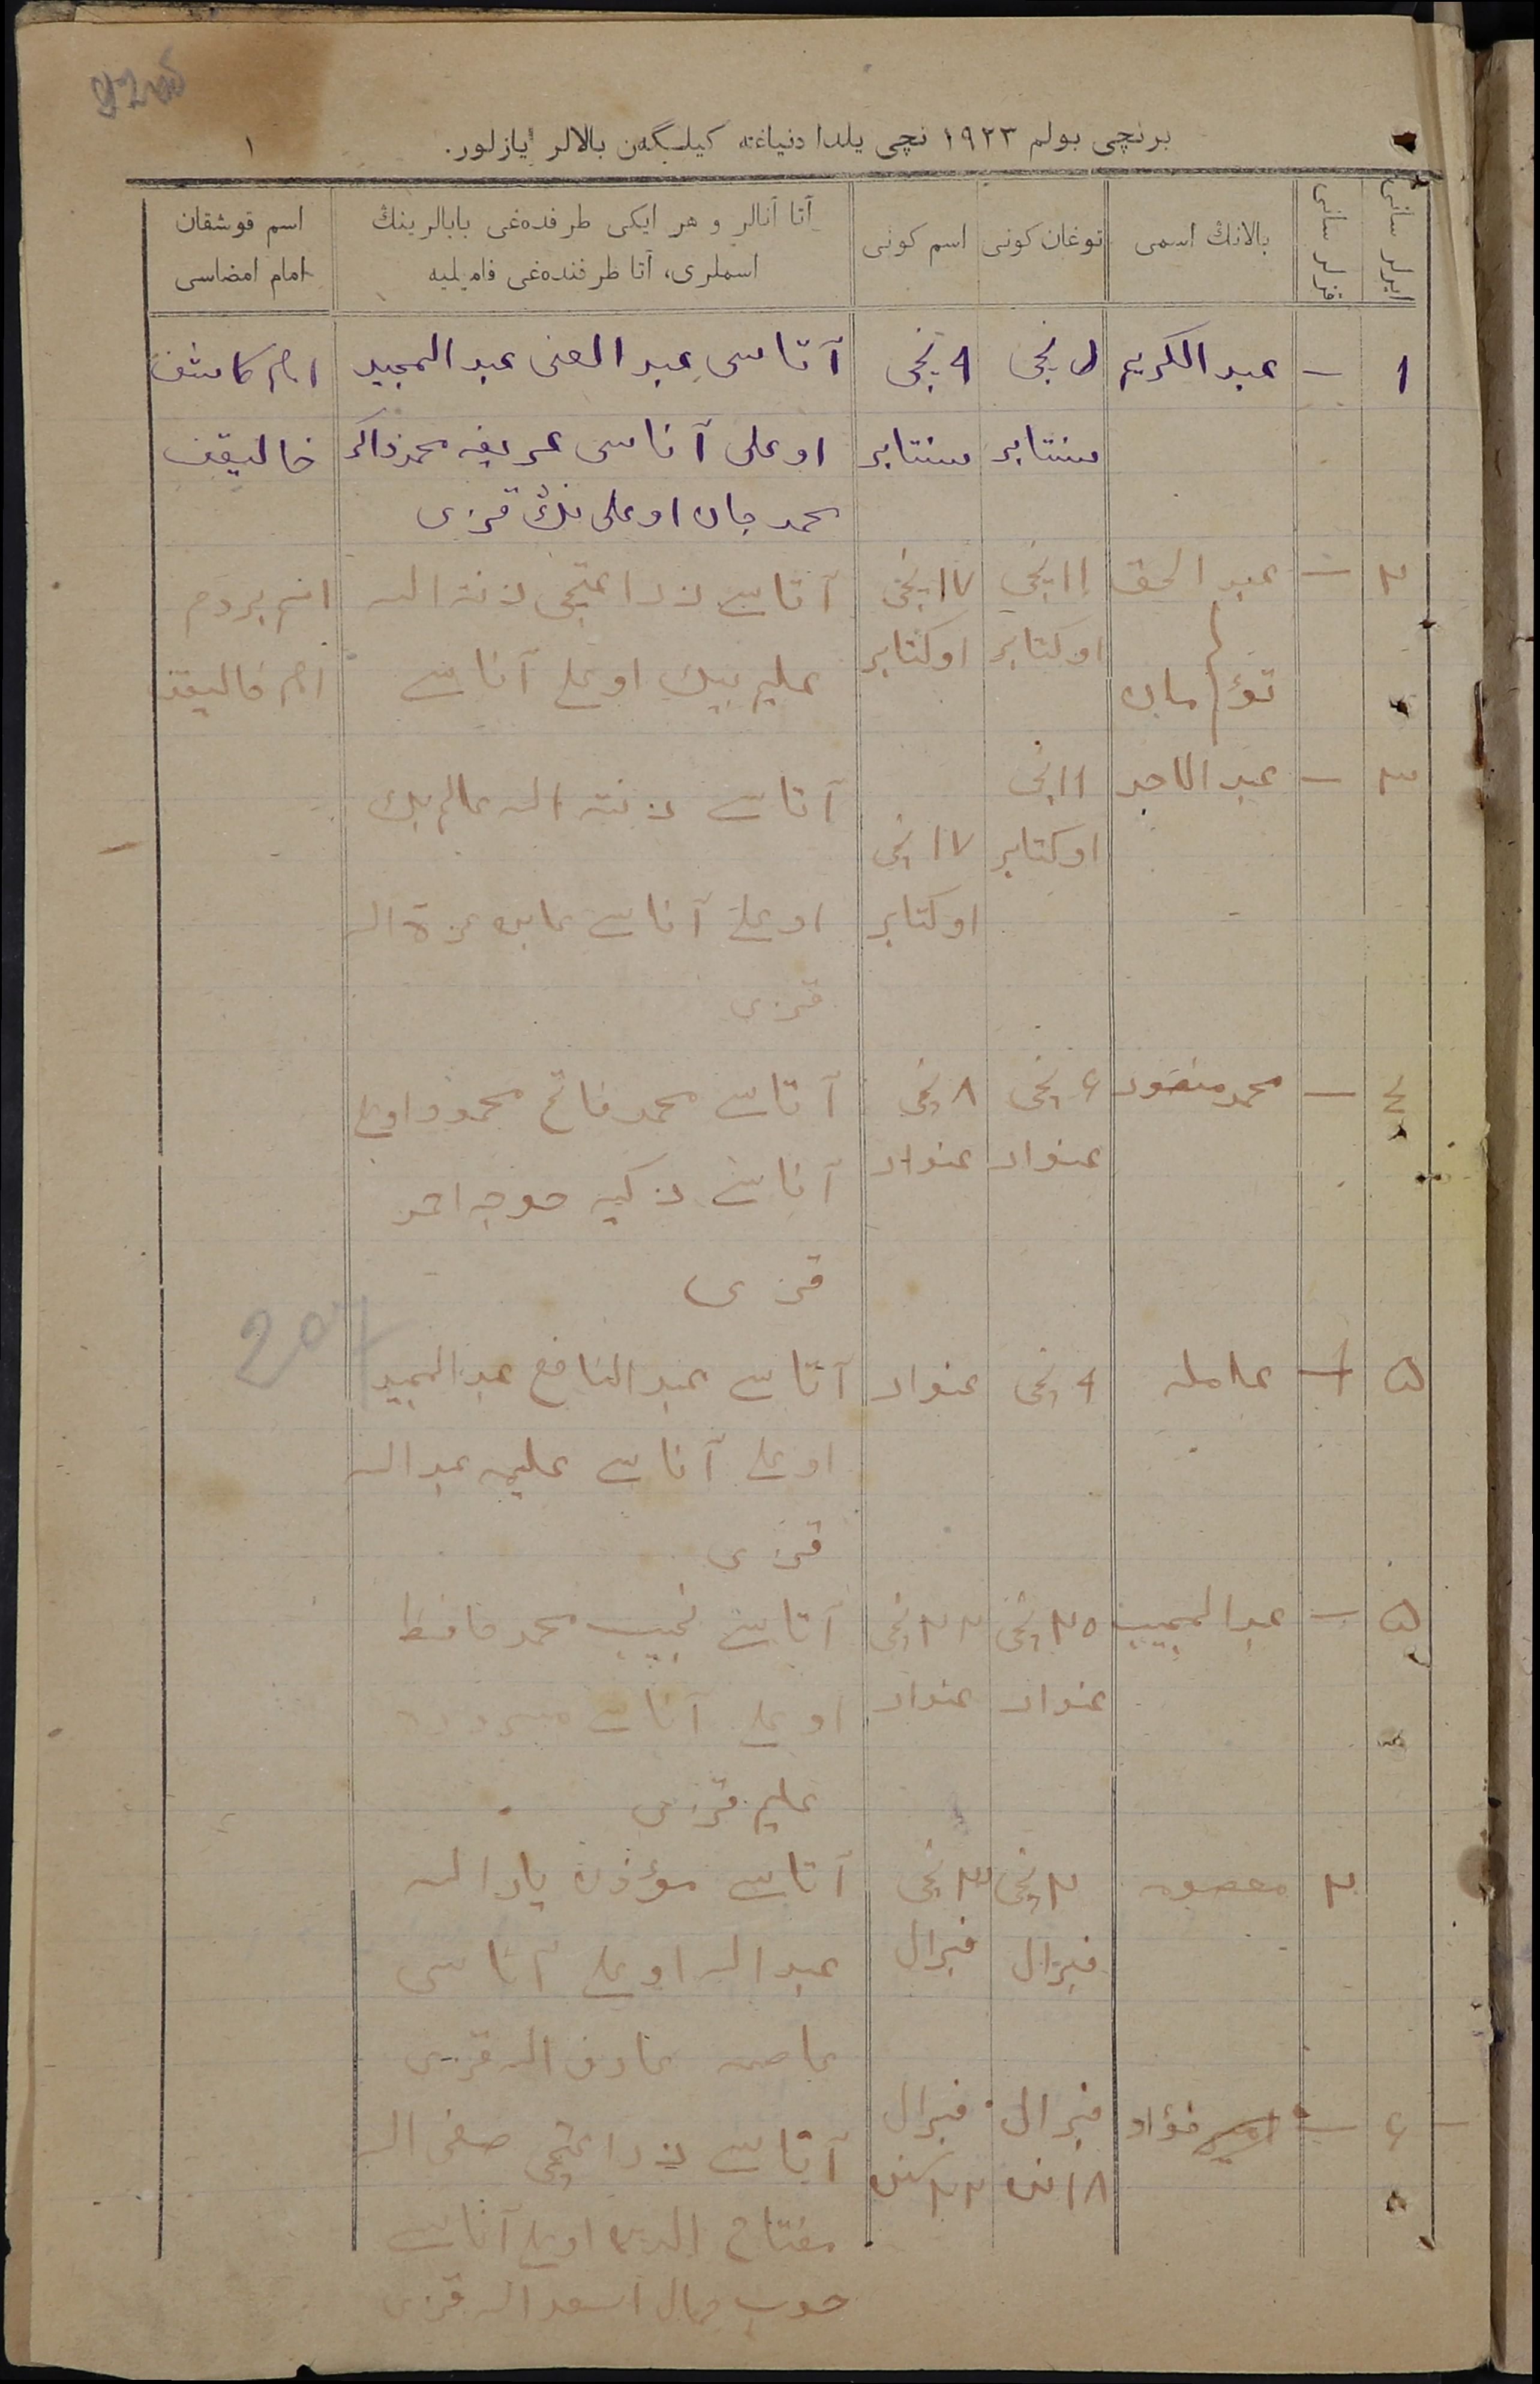 برنچی بولم ۱۹۲۳ نچی یلدا دنیاغه کیلگەن بالالر یازلور.
۱
ایرلر سانی
قزلر سانی
بالانڭ اسمی
توغان کونی
اسم کونی
آتا آنالر و هر ایکی طرفدەغی بابالرینڭ
اسملری، آتا طرفندەغی فامیلیه
اسم قوشقان
امام امضاسی
۱ — عبد الکریم
نچی
سنتابر
۹ نچی
سنتابر
آتاسی عبد الغنی عبد المجید
اوغلی آناسی عریفه محمدذاکر
محمد جان اوغلی نڭ قزی
امام کاشف
خالیقف
۲ — عبد الحق
توأمان
۱۱ نچی
اوکتابر
۱۷ نچی
اوکتابر
آتاسی زینة الله
علیم بیك اوغلی آناسی
امام خالیقف
۳ — عبد الماجد
۱۱ نچی
اوکتابر
۱۷ نچی
اوکتابر
آتاسی زینة الله عالم بك
اوغلی آناسی عزة الله
قزی
۴ — محمد منصور
۶ نچی
غنوار
۸ نچی
غنوار
آتاسی محمد فاتح محمود اوغلی
آناسی زکیه خوجه احمد
قزی
207
۱ عامله
۹ نچی
غنوار
آتاسی عبد النافع عبد المجید
اوغلی آناسی علیمه عبد الله
قزی
۵ — عبد المجیب
۲۵ نچی
غنوار
نچی
غنوار
آتاسی نجیب محمد حافظ
اوغلی آناسی
علیم قزی
۲ معصومه
۲ نچی
فبرال
۳ نچی
فبرال
آتاسی مؤذن یار الله
عبد الله اوغلی آناسی
عاصمه عارف الله قزی
۶ — فؤاد
فبرال
۱۸
فبرال
۲۲
آتاسی صفی الله
مفتاح الدین اوغلی آناسی
جمال اسعد الله قزی